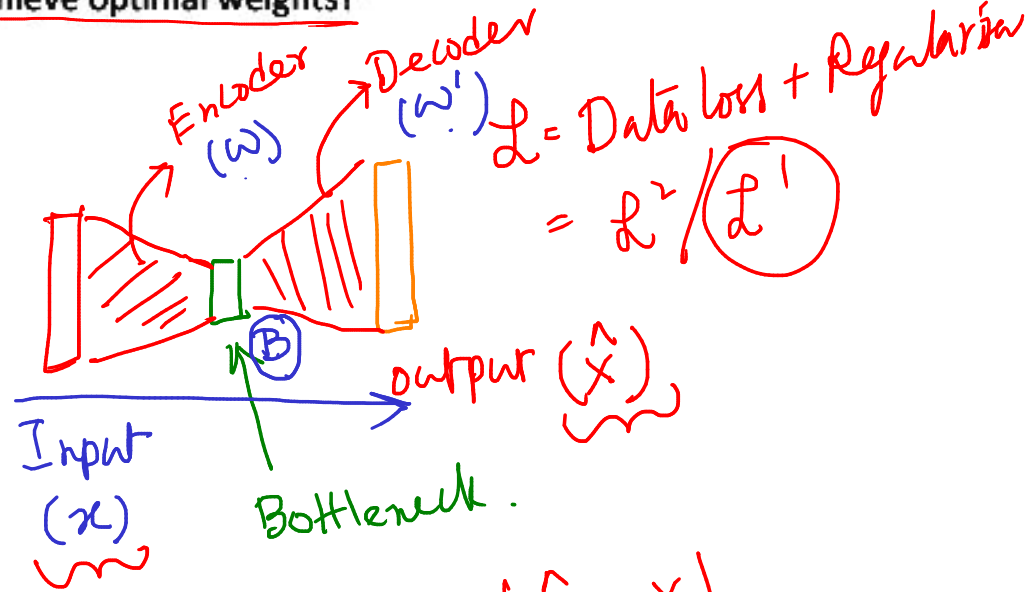 optimal weights?
Encoder
(W)
Decoder
(W')
L = Data loss +
= L² / L¹
B
output (x̂)
Input
(x)
Bottleneck.